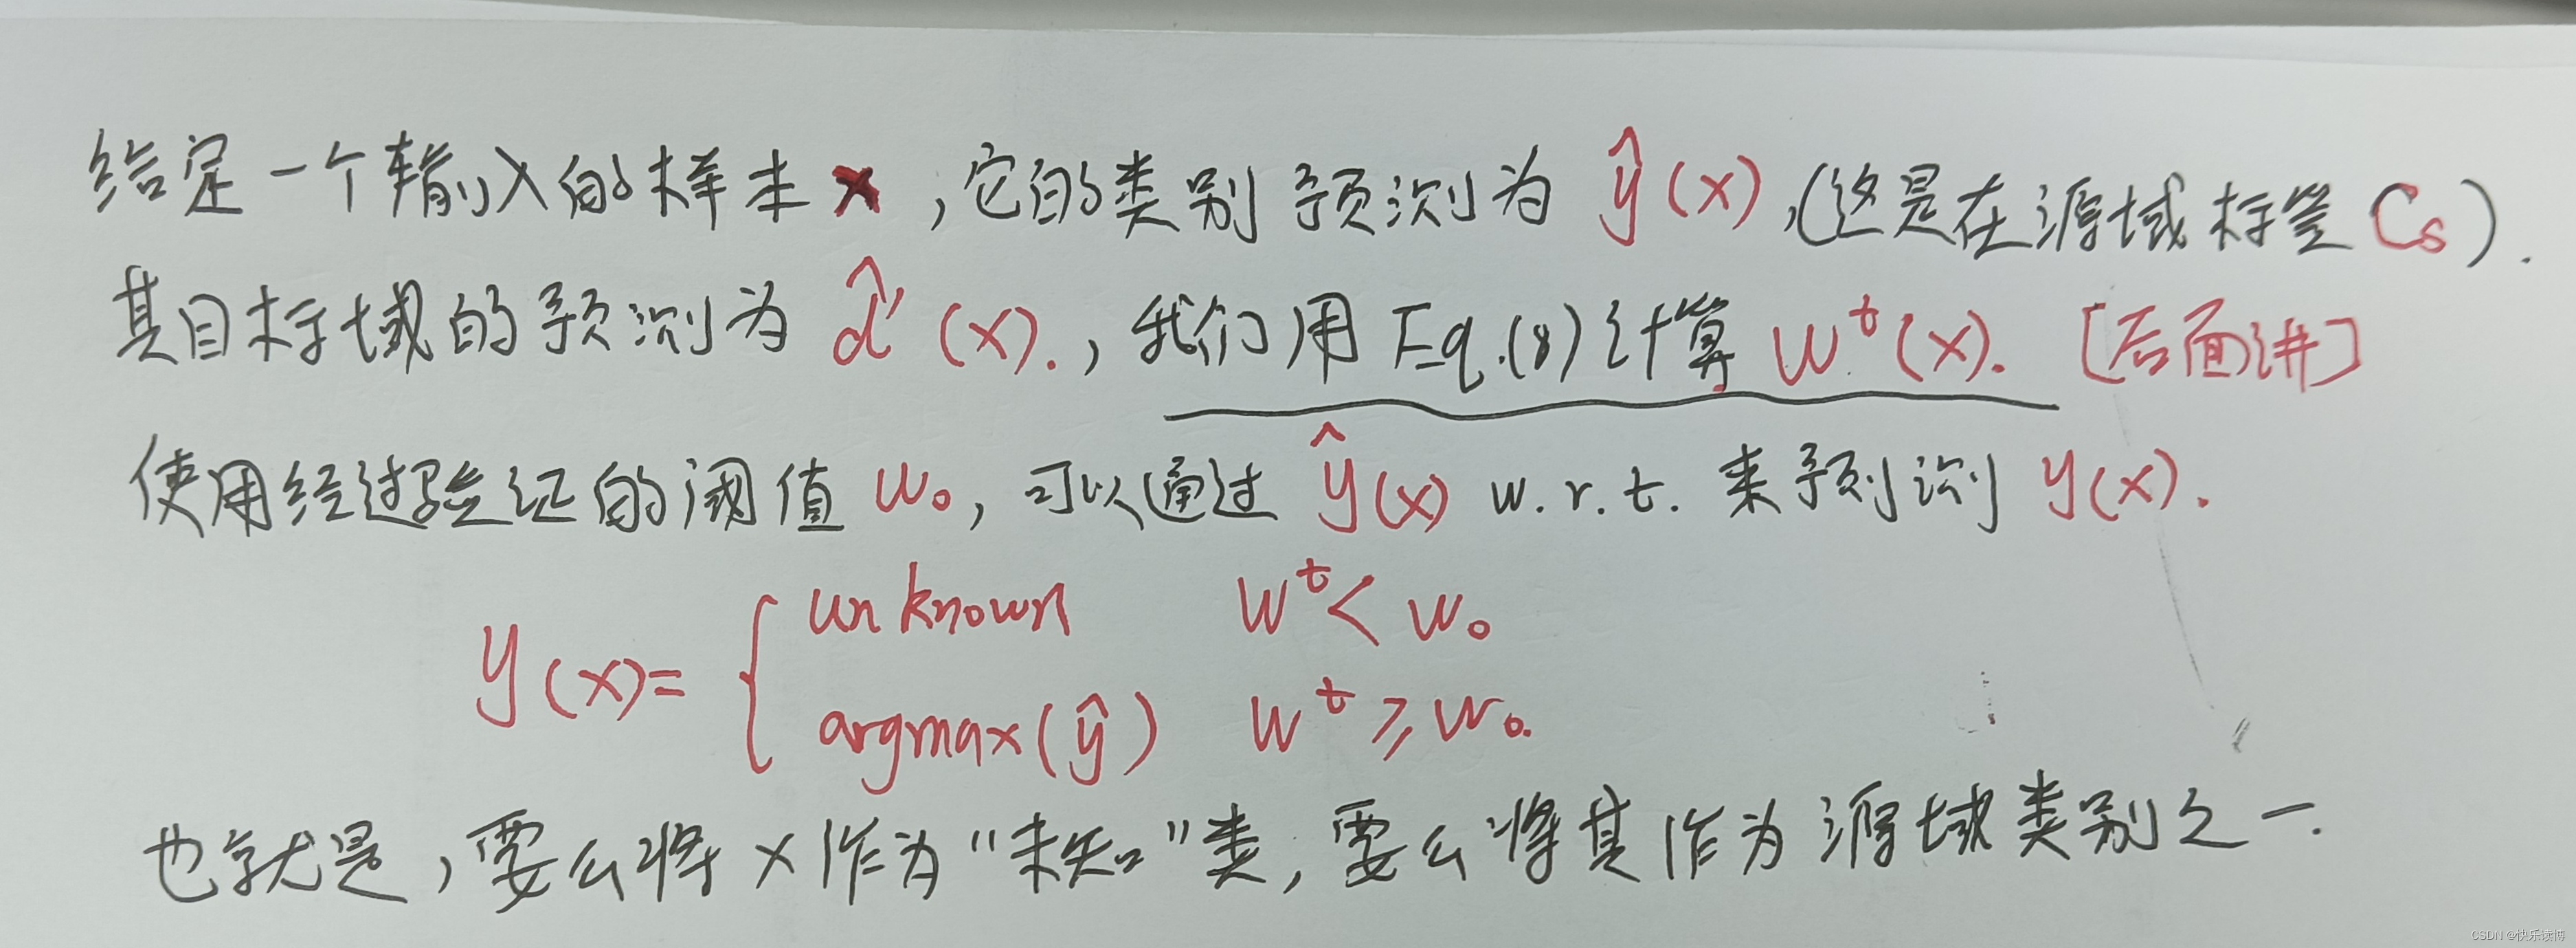 给定一个输入的样本 x ,它的类别预测为 ŷ(x),(这是在源域标签 Cs).
其目标域的预测为 d̂'(x).,我们用 Eq.(8)计算 wᵗ(x). [后面讲]
使用经过验证的阈值 w₀,可以通过 ŷ(x) w.r.t. 来预测 y(x).
y(x)= { unknown wᵗ< w₀
argmax(ŷ) wᵗ ≥ w₀.
也就是,要么将 x 作为"未知"类,要么将其作为源域类别之一.
CSDN @快乐读博